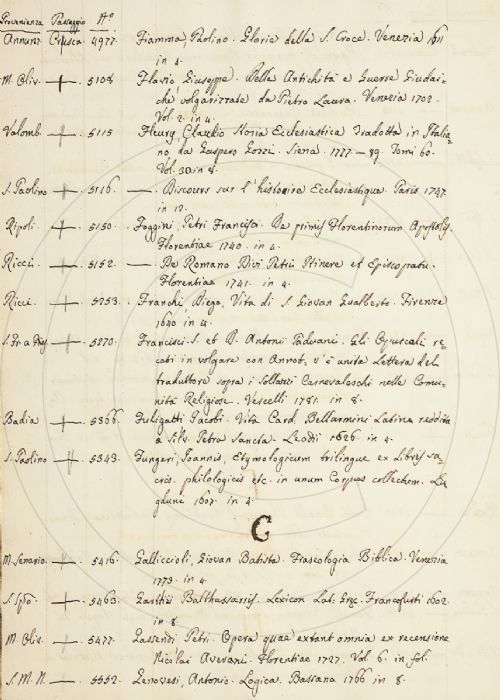 Provenienza Passaggio Nº
Annunz. Crusca. 4977. Fiamma, Paolino. Glorie della S. Croce. Venezia 1611
in 4.
M. Oliv. 5108 Flavio Giuseppe. Delle Antichità e Guerre Giudai-
che volgarizzate da Pietro Lauro. Venezia 1702.
Vol. 2. in 4.
Valomb. 5115 Fleury, Claudio Storia Ecclesiastica tradotta in Italia-
no da Gaspero Gozzi. Siena. 1777-89. Tomi 60.
Vol. 30 in 8.
S. Paolino 5116. —. Discours sur l'histoire Ecclesiastique. Paris 1747
in 12.
Ripoli 5150. Foggini, Petri Francisci. De primis Florentinorum Apostolis.
Florentiae 1740. in 4.
Ricci. 5152. —. De Romano Divi Petri Itinere et Episcopatu.
Florentiae 1741. in 4.
Ricci 5253. Franchi Diego, Vita di S. Giovan Gualberto. Firenze
1640 in 4.
5270. Francisci S. et B. Antonii Paduani. Gli Opuscoli re-
cati in volgare con Annot. v'è unita Lettera del
traduttore sopra i sollazzi Carnevaleschi nelle Comu-
nità Religiose. Vercelli 1781. in 8.
Badia 5306. Fuligatti Jacobi. Vita Card. Bellarmini Latine reddita
a Silv. Petra Sancta. Leodii 1626 in 4.
S. Paolino 5343. Fungeri, Joannis, Etymologicum trilingue ex Libris sa-
cris. philologicis etc. in unum Corpus collectum. Lu-
gduni 1607. in 4.
G
M. Senario 5416. Galliccioli, Giovan Batista. Fraseologia Biblica. Venezia
1773. in 4.
S. Spo. 5463. Garthii Balthassaris. Lexicon Lat. Grec. Francofurti 1602.
in 8.
M. Oliv. 5477. Gassendi Petri. Opera quae extant omnia ex recensione
Nicolai Averani. Florentiae 1727. Vol. 6. in fol.
S. M. N. 5552. Genovesi, Antonio. Logica. Bassano 1766 in 8.